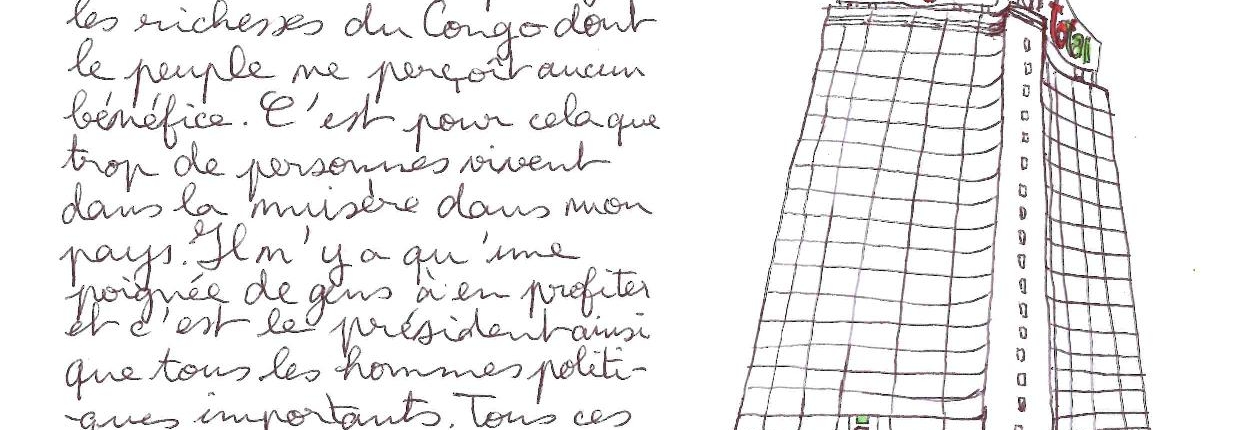 les richesses du Congo dont
le peuple ne perçoit aucun
bénéfice. C'est pour cela que
trop de personnes vivent
dans la misère dans mon
pays. Il n'y a qu'une
poignée de gens à en profiter
et c'est le président ainsi
que tous les hommes politi-
-ques importants. Tous ces
total